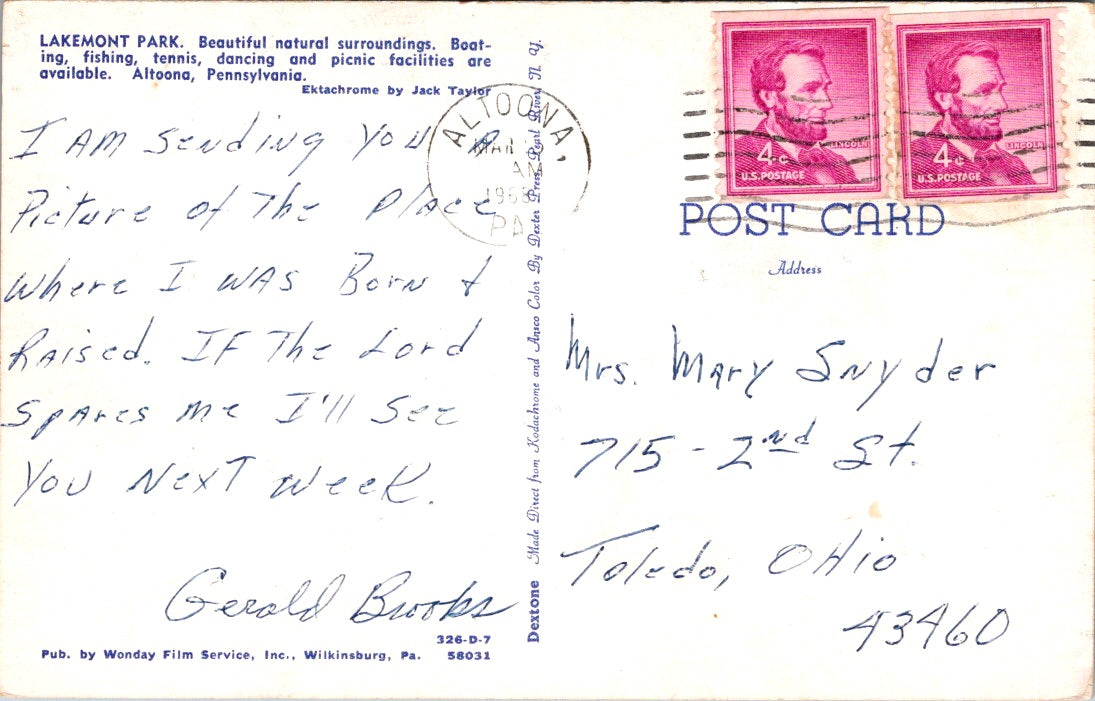 LAKEMONT PARK. Beautiful natural surroundings. Boat-
ing, fishing, tennis, dancing and picnic facilities are
available. Altoona, Pennsylvania.
Ektachrome by Jack Taylor
I AM Sending YOU A
Picture of The Place
Where I WAS Born &
Raised. IF The Lord
SPAres Me I'll See
You Next Week.
Gerald Brooks
326-D-7
Pub. by Wonday Film Service, Inc., Wilkinsburg, Pa. 58031
Dextone Made Direct from Kodachrome and Ansco Color By Dexter Press, Pearl River, N. Y.
ALTOONA,
MAR
AM
1968
PA
4¢ LINCOLN
U.S. POSTAGE
4¢ LINCOLN
U.S. POSTAGE
POST CARD
Address
Mrs. MARY SNYder
715 - 2nd St.
Toledo, OHio
43460